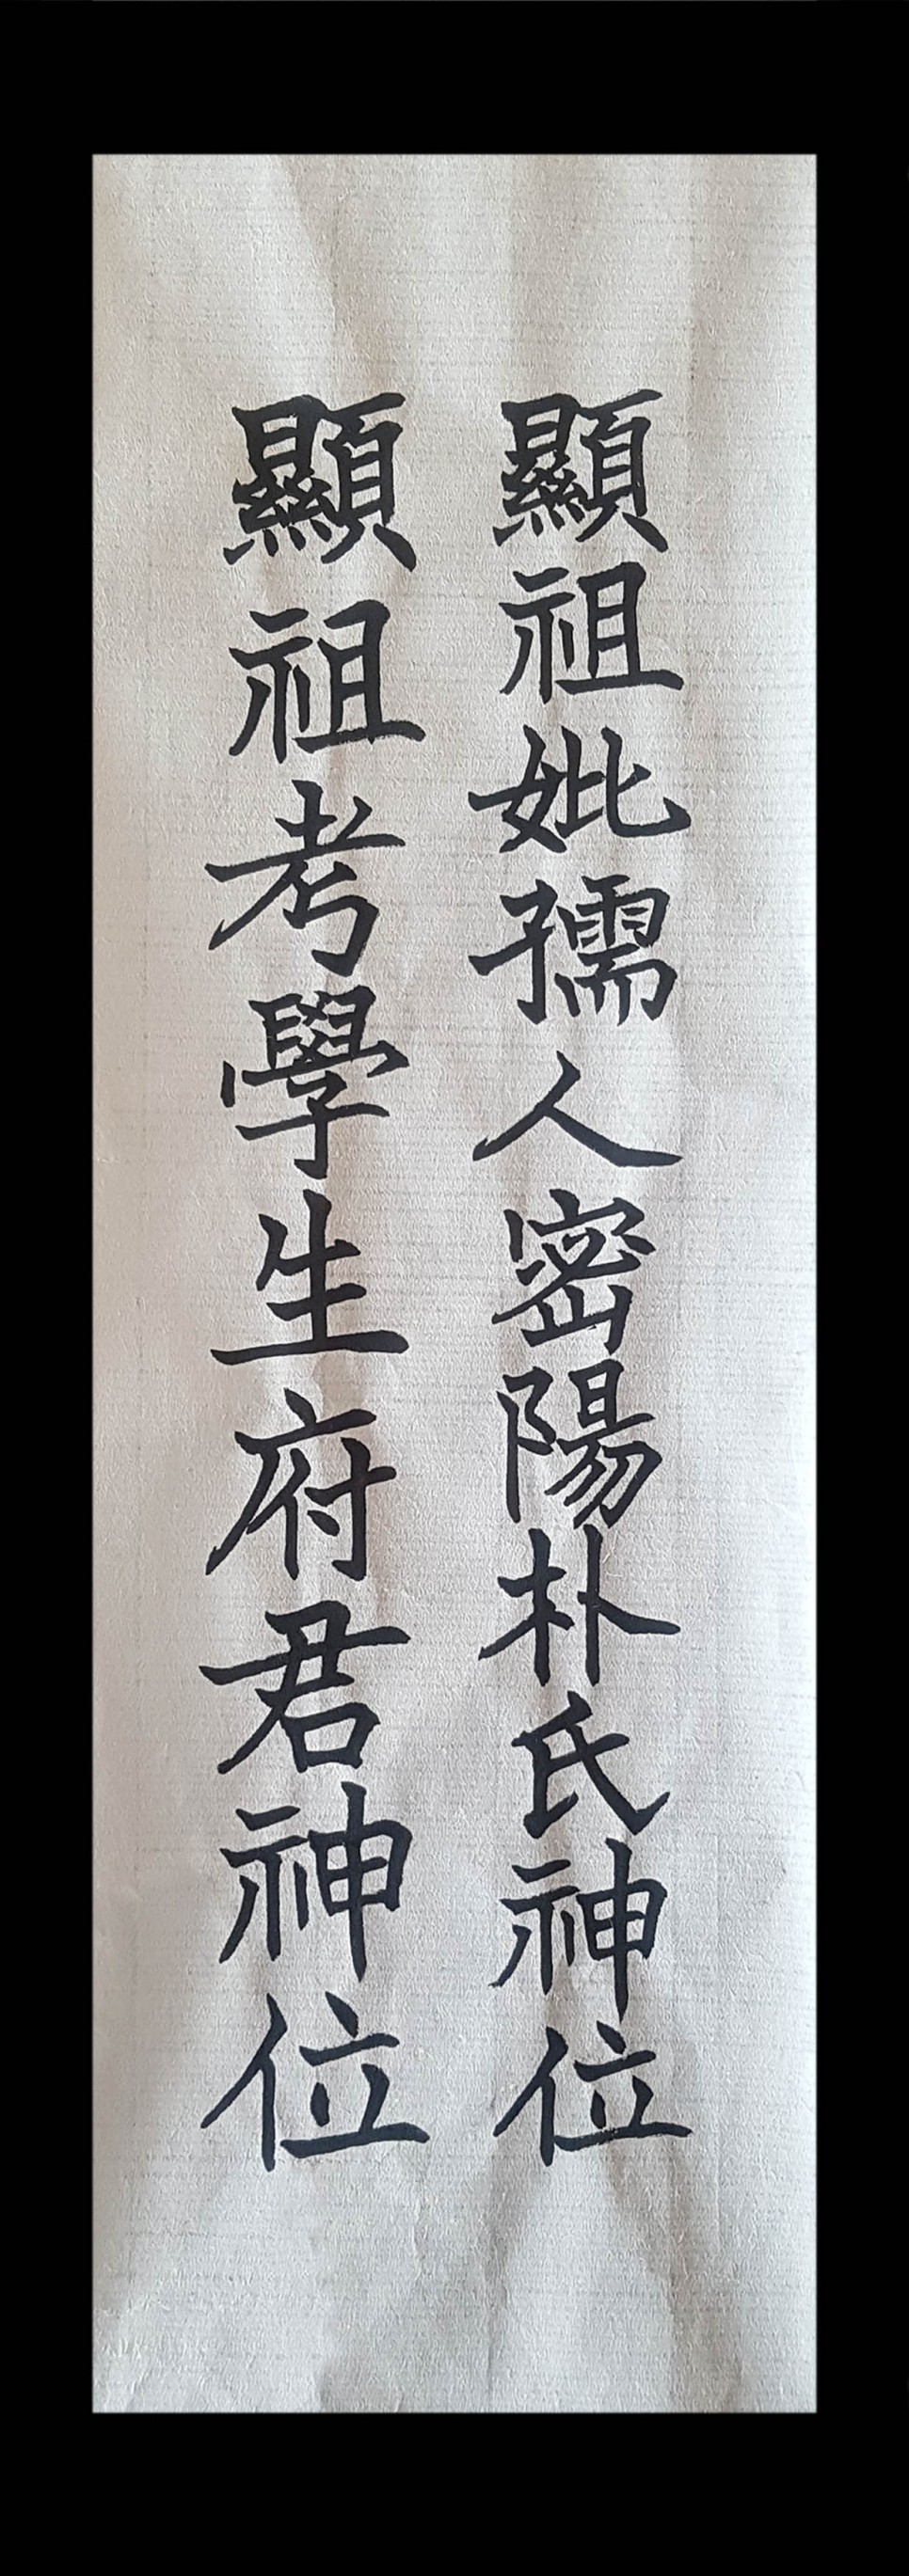 顯祖妣孺人密陽朴氏神位
顯祖考學生府君神位